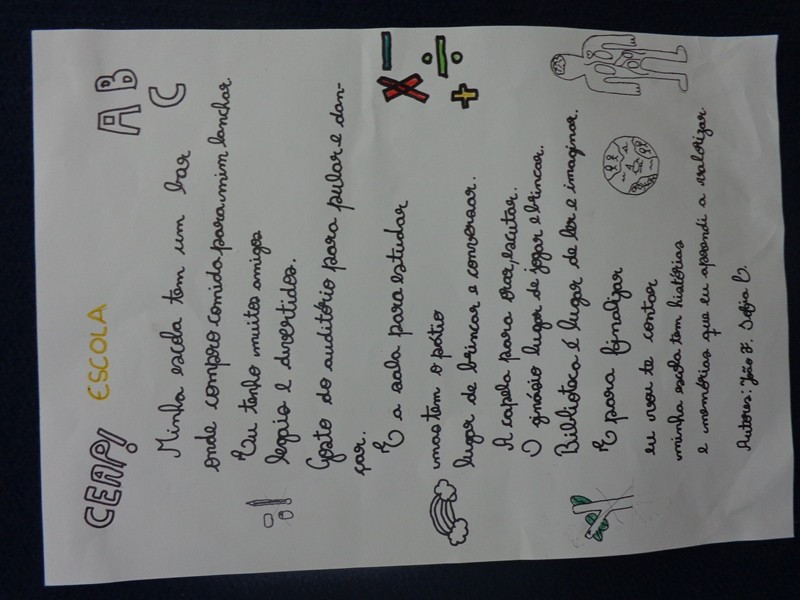 CEAP! ESCOLA
A B
C
Minha escola tem um bar
onde compro comida para mim lanchar
Eu tenho muitos amigos
legais e divertidos.
Gosto do auditório para pular e dan-
çar.
E a sala para estudar
mas tem o pátio
lugar de brincar e conversar.
A capela para orar, escutar.
O ginásio lugar de jogar e brincar.
Biblioteca é lugar de ler e imaginar.
E para finalizar
eu vou te contar
minha escola tem histórias
e memórias que eu aprendi a valorizar
Autores: João F. Sofia C.